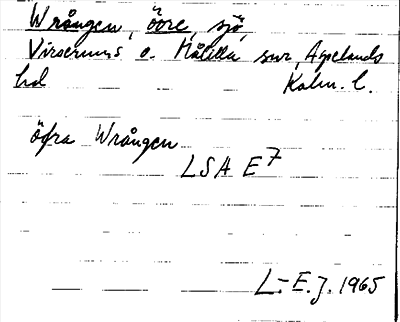 Wrången, övre, sjö,
Virserums o. Målilla snr, Aspelands
hd Kalm. l.
öfra Wrången
LSA E7
L-E.J. 1965